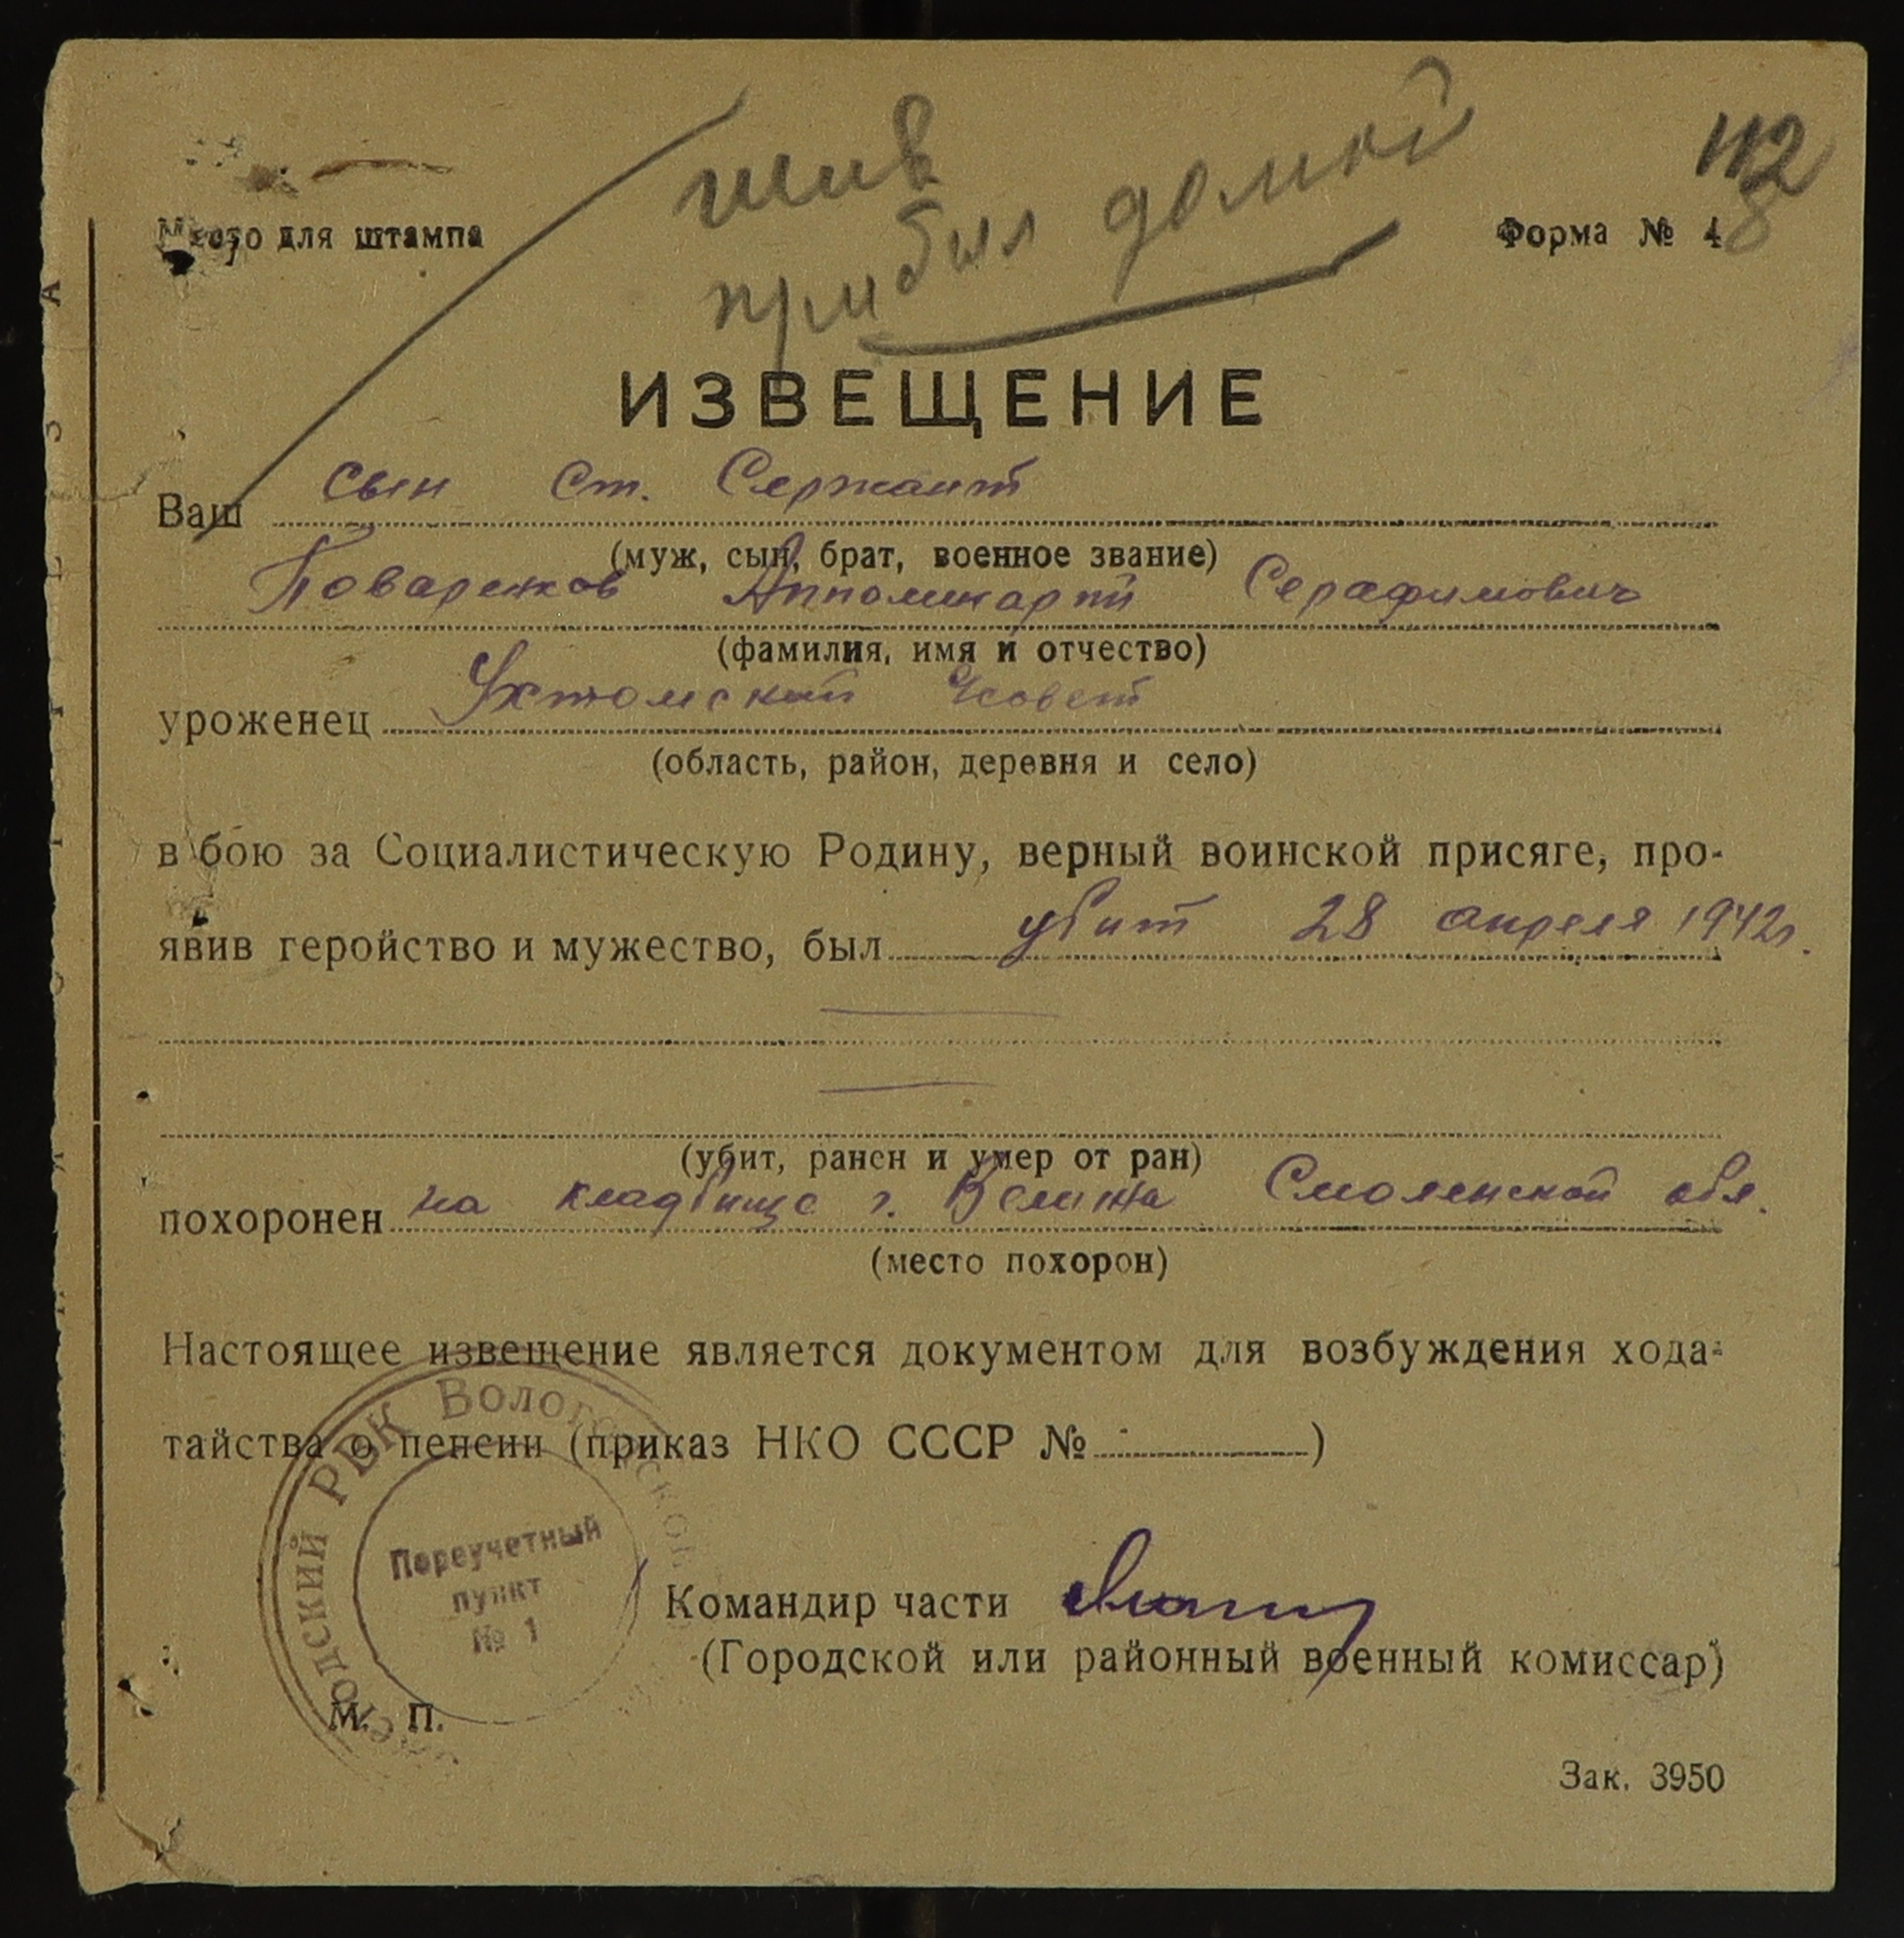 жив
прибыл домой
112
8
Место для штампа
Форма № 4
ИЗВЕЩЕНИЕ
Ваш сын Ст. Сержант
(муж, сын, брат, военное звание)
Поварежков Апполинарий Серафимович
(фамилия, имя и отчество)
уроженец Ухтомский с/совет
(область, район, деревня и село)
в бою за Социалистическую Родину, верный воинской присяге, про-
явив геройство и мужество, был убит 28 апреля 1942г.
(убит, ранен и умер от ран)
похоронен на кладбище г. Велижа Смоленской обл.
(место похорон)
Настоящее извещение является документом для возбуждения хода-
тайства о пенсии (приказ НКО СССР № )
РВК Вологодской
Переучетный
пункт
№ 1
Командир части
(Городской или районный военный комиссар)
М. П.
Зак. 3950